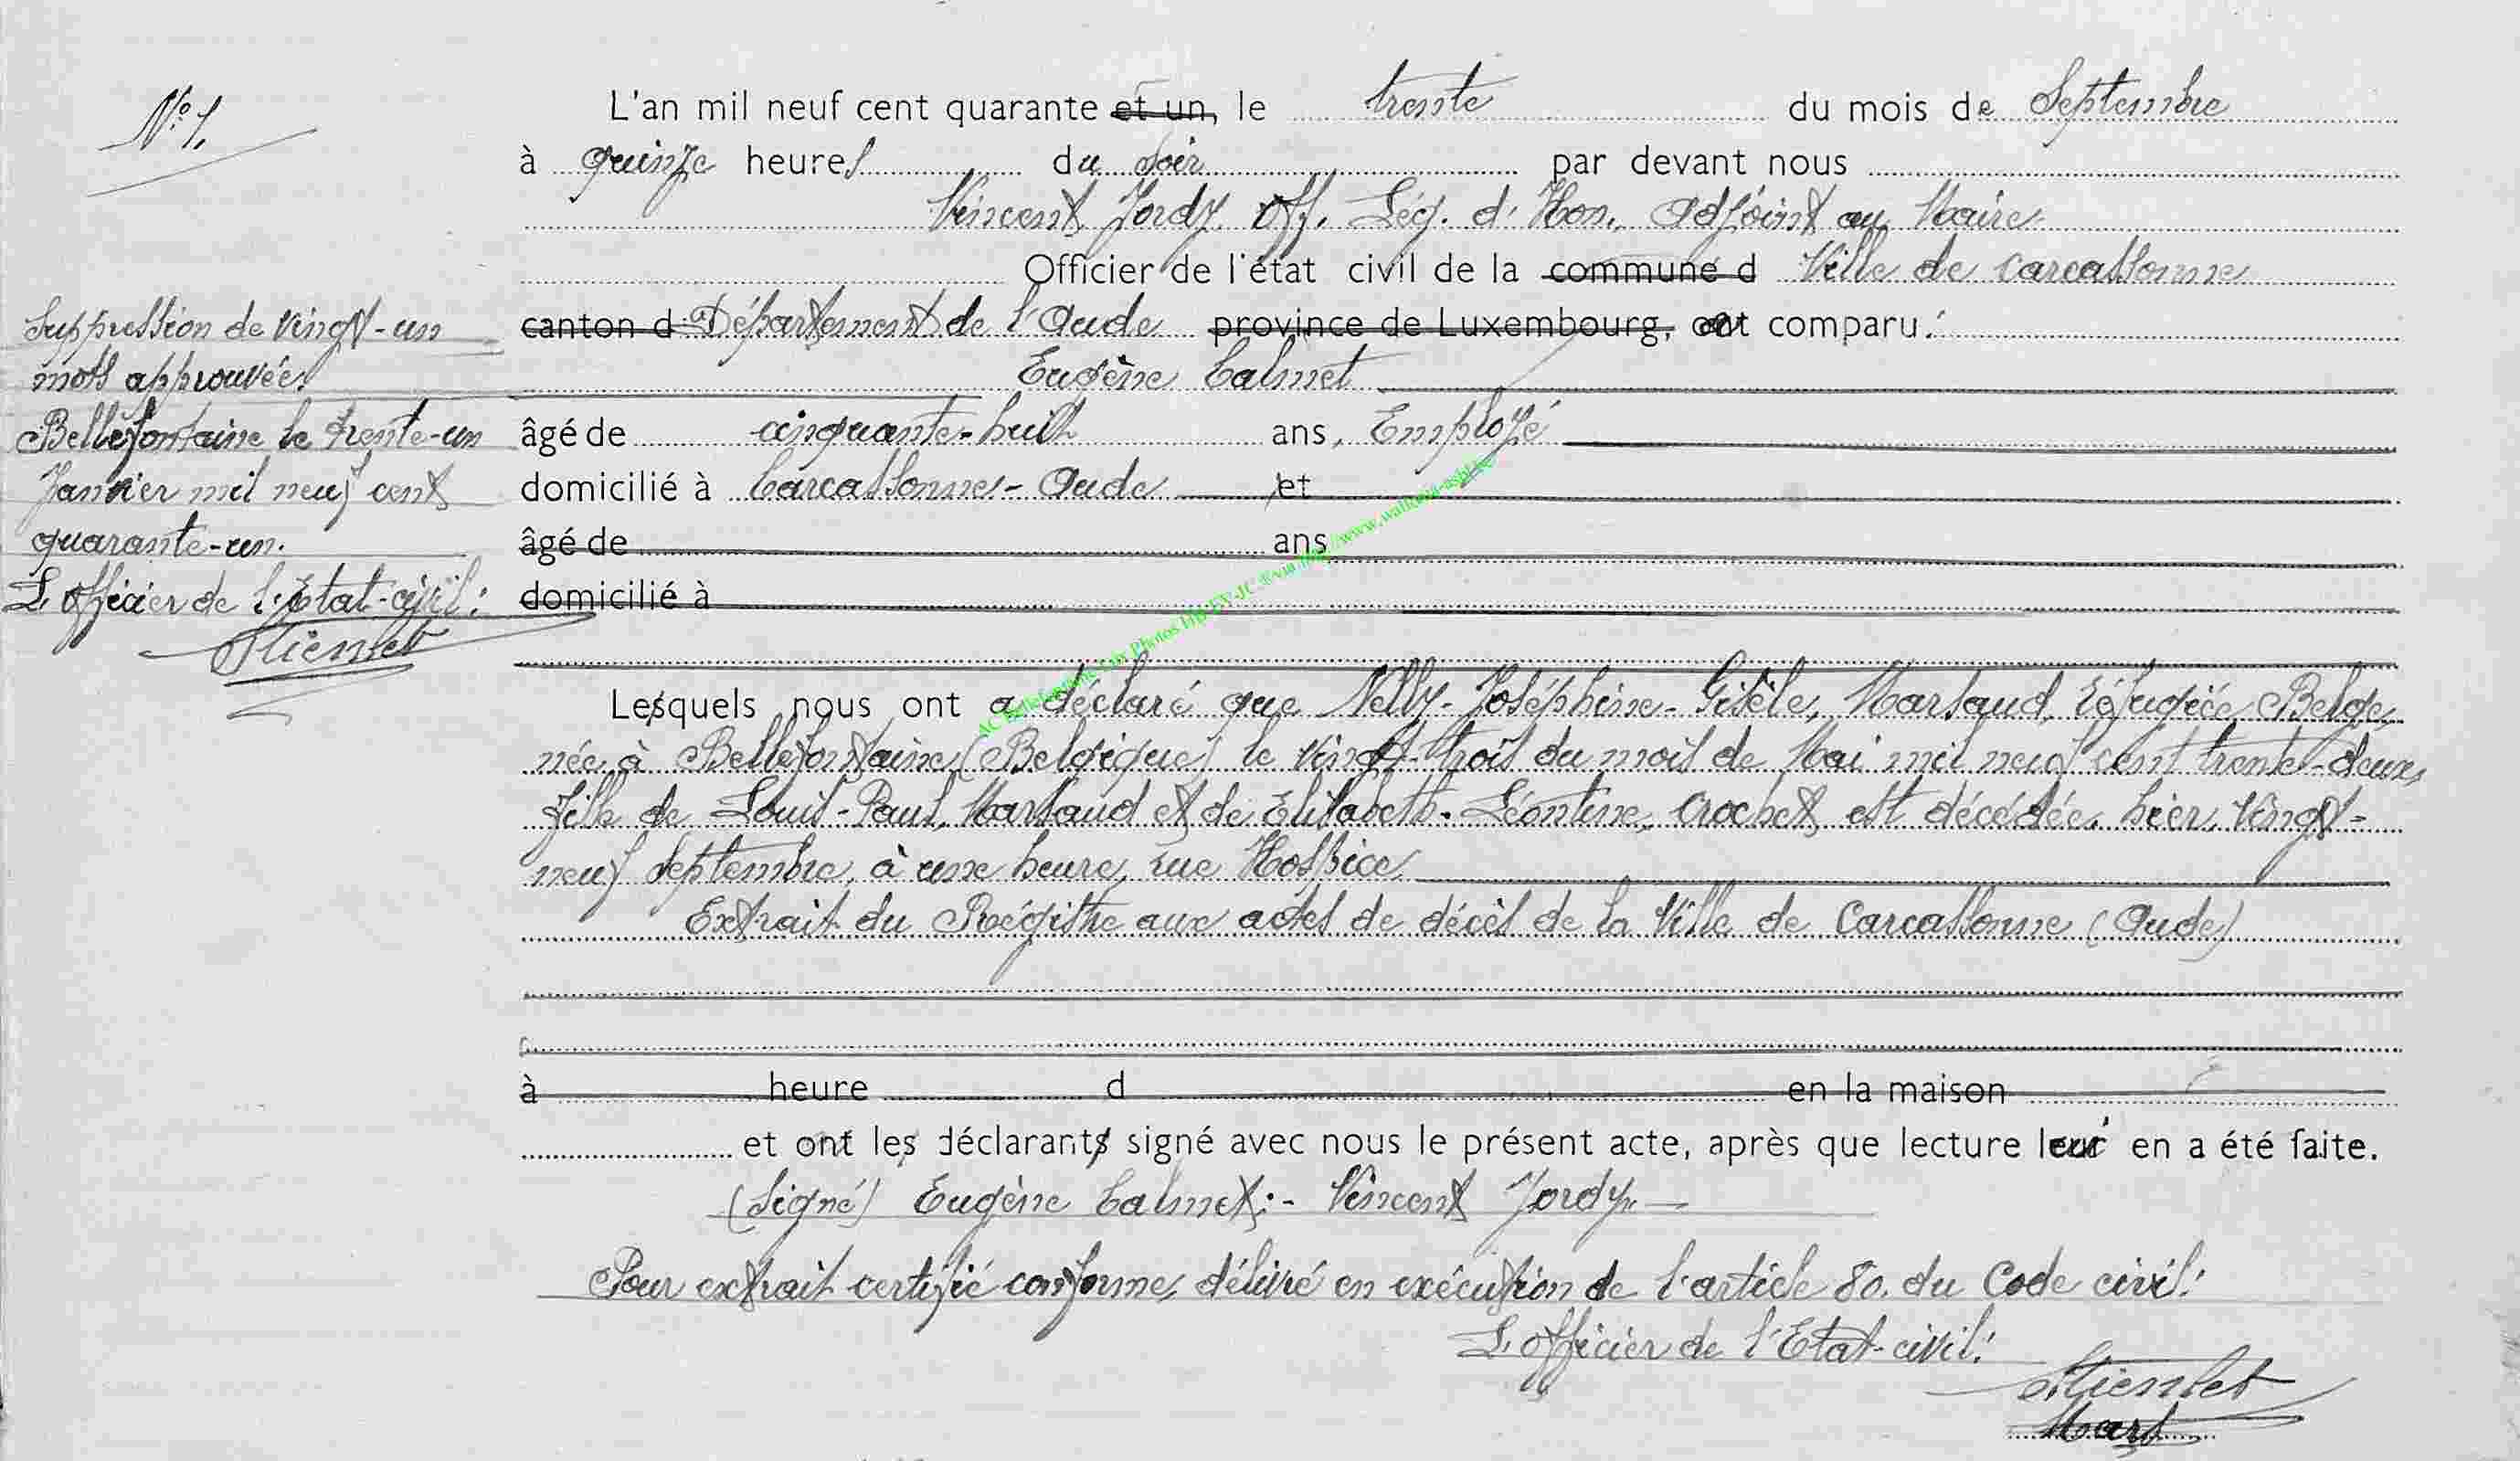 N° 1.
L'an mil neuf cent quarante et un, le trente du mois de Septembre
à quinze heures du soir par devant nous
Vincent Jordy, Off. Lég. d'Hon., Adjoint au Maire
Officier de l'état civil de la commune d Ville de Carcassonne
canton d Département de l'Aude province de Luxembourg, ont comparu:
Eugène Calmet
âgé de cinquante-huit ans, Employé
domicilié à Carcassonne - Aude et
âgé de ans
domicilié à
Suppression de vingt-un
mots approuvée.
Bellefontaine le trente-un
Janvier mil neuf cent
quarante-un.
L'officier de l'Etat-civil:
Lesquels nous ont a déclaré que Nelly-Joséphine-Gisèle, Marsaud, réfugiée Belge,
née à Bellefontaine (Belgique) le vingt-trois du mois de Mai mil neuf cent trente-deux,
fille de Louis-Paul, Marsaud et de Elisabeth-Léontine, Crochet est décédée, hier, vingt-
neuf septembre, à une heure, rue Hospice
Extrait du Régistre aux actes de décès de la Ville de Carcassonne (Aude)
à heure d en la maison
et ont les déclarants signé avec nous le présent acte, après que lecture leur en a été faite.
(Signé) Eugène Calmet:- Vincent Jordy.
Pour extrait certifié conforme, délivré en exécution de l'article 80. du Code civil:
L'officier de l'Etat-civil: